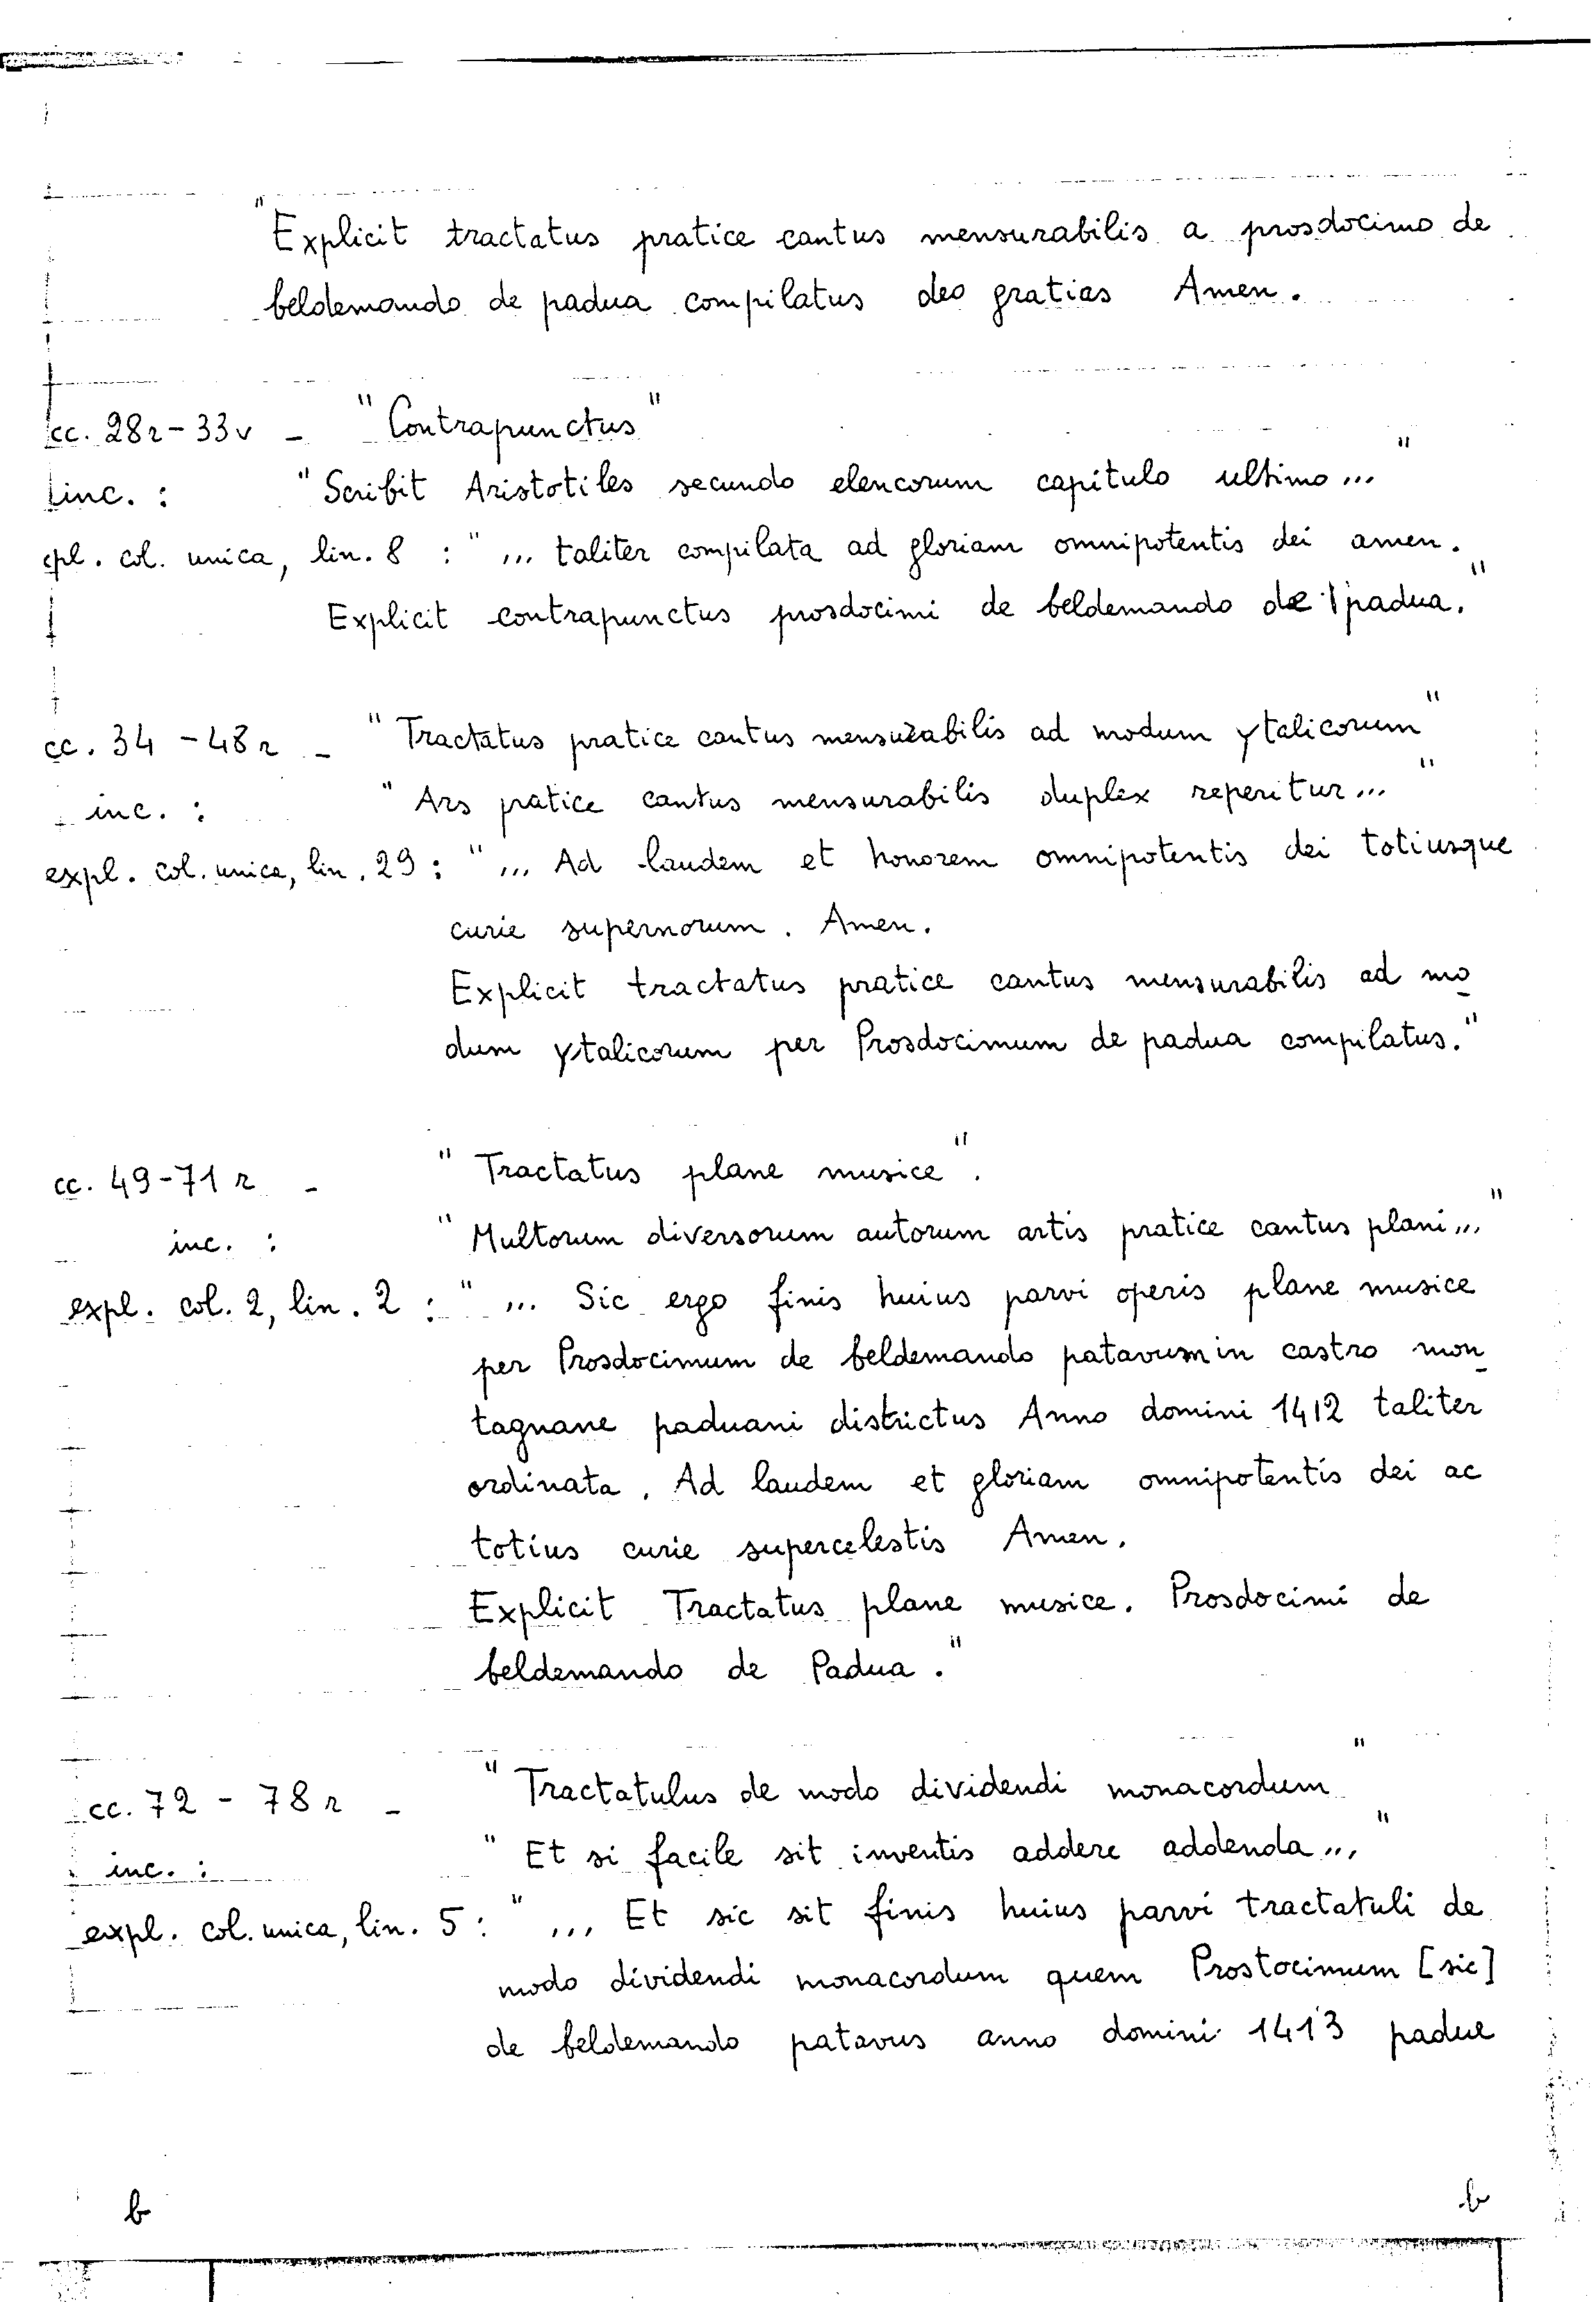 "Explicit tractatus pratice cantus mensurabilis a prosdocimo de
beldemando de padua compilatus deo gratias Amen.
cc. 28r-33v - "Contrapunctus"
inc. : "Scribit Aristotiles secundo elencorum capitulo ultimo..."
epl. col. unica, lin. 8 : "... taliter compilata ad gloriam omnipotentis dei amen.
Explicit contrapunctus prosdocimi de beldemando de padua."
cc. 34-48r - "Tractatus pratice cantus mensurabilis ad modum ytalicorum"
inc. : "Ars pratice cantus mensurabilis duplex reperitur..."
expl. col. unica, lin. 29 : "... Ad laudem et honorem omnipotentis dei totiusque
curie supernorum. Amen.
Explicit tractatus pratice cantus mensurabilis ad mo
dum ytalicorum per Prosdocimum de padua compilatus."
cc. 49-71r - "Tractatus plane musice".
inc. : "Multorum diversorum autorum artis pratice cantus plani..."
expl. col. 2, lin. 2 : "... Sic ergo finis huius parvi operis plane musice
per Prosdocimum de beldemando patavum in castro mon
tagnane paduani districtus Anno domini 1412 taliter
ordinata. Ad laudem et gloriam omnipotentis dei ac
totius curie supercelestis Amen.
Explicit Tractatus plane musice. Prosdocimi de
beldemando de Padua."
cc. 72 - 78r - "Tractatulus de modo dividendi monacordum"
inc. : "Et si facile sit inventis addere addenda..."
expl. col. unica, lin. 5 : "... Et sic sit finis huius parvi tractatuli de
modo dividendi monacordum quem Prostocimum [sic]
de beldemando patavus anno domini 1413 padue
b b